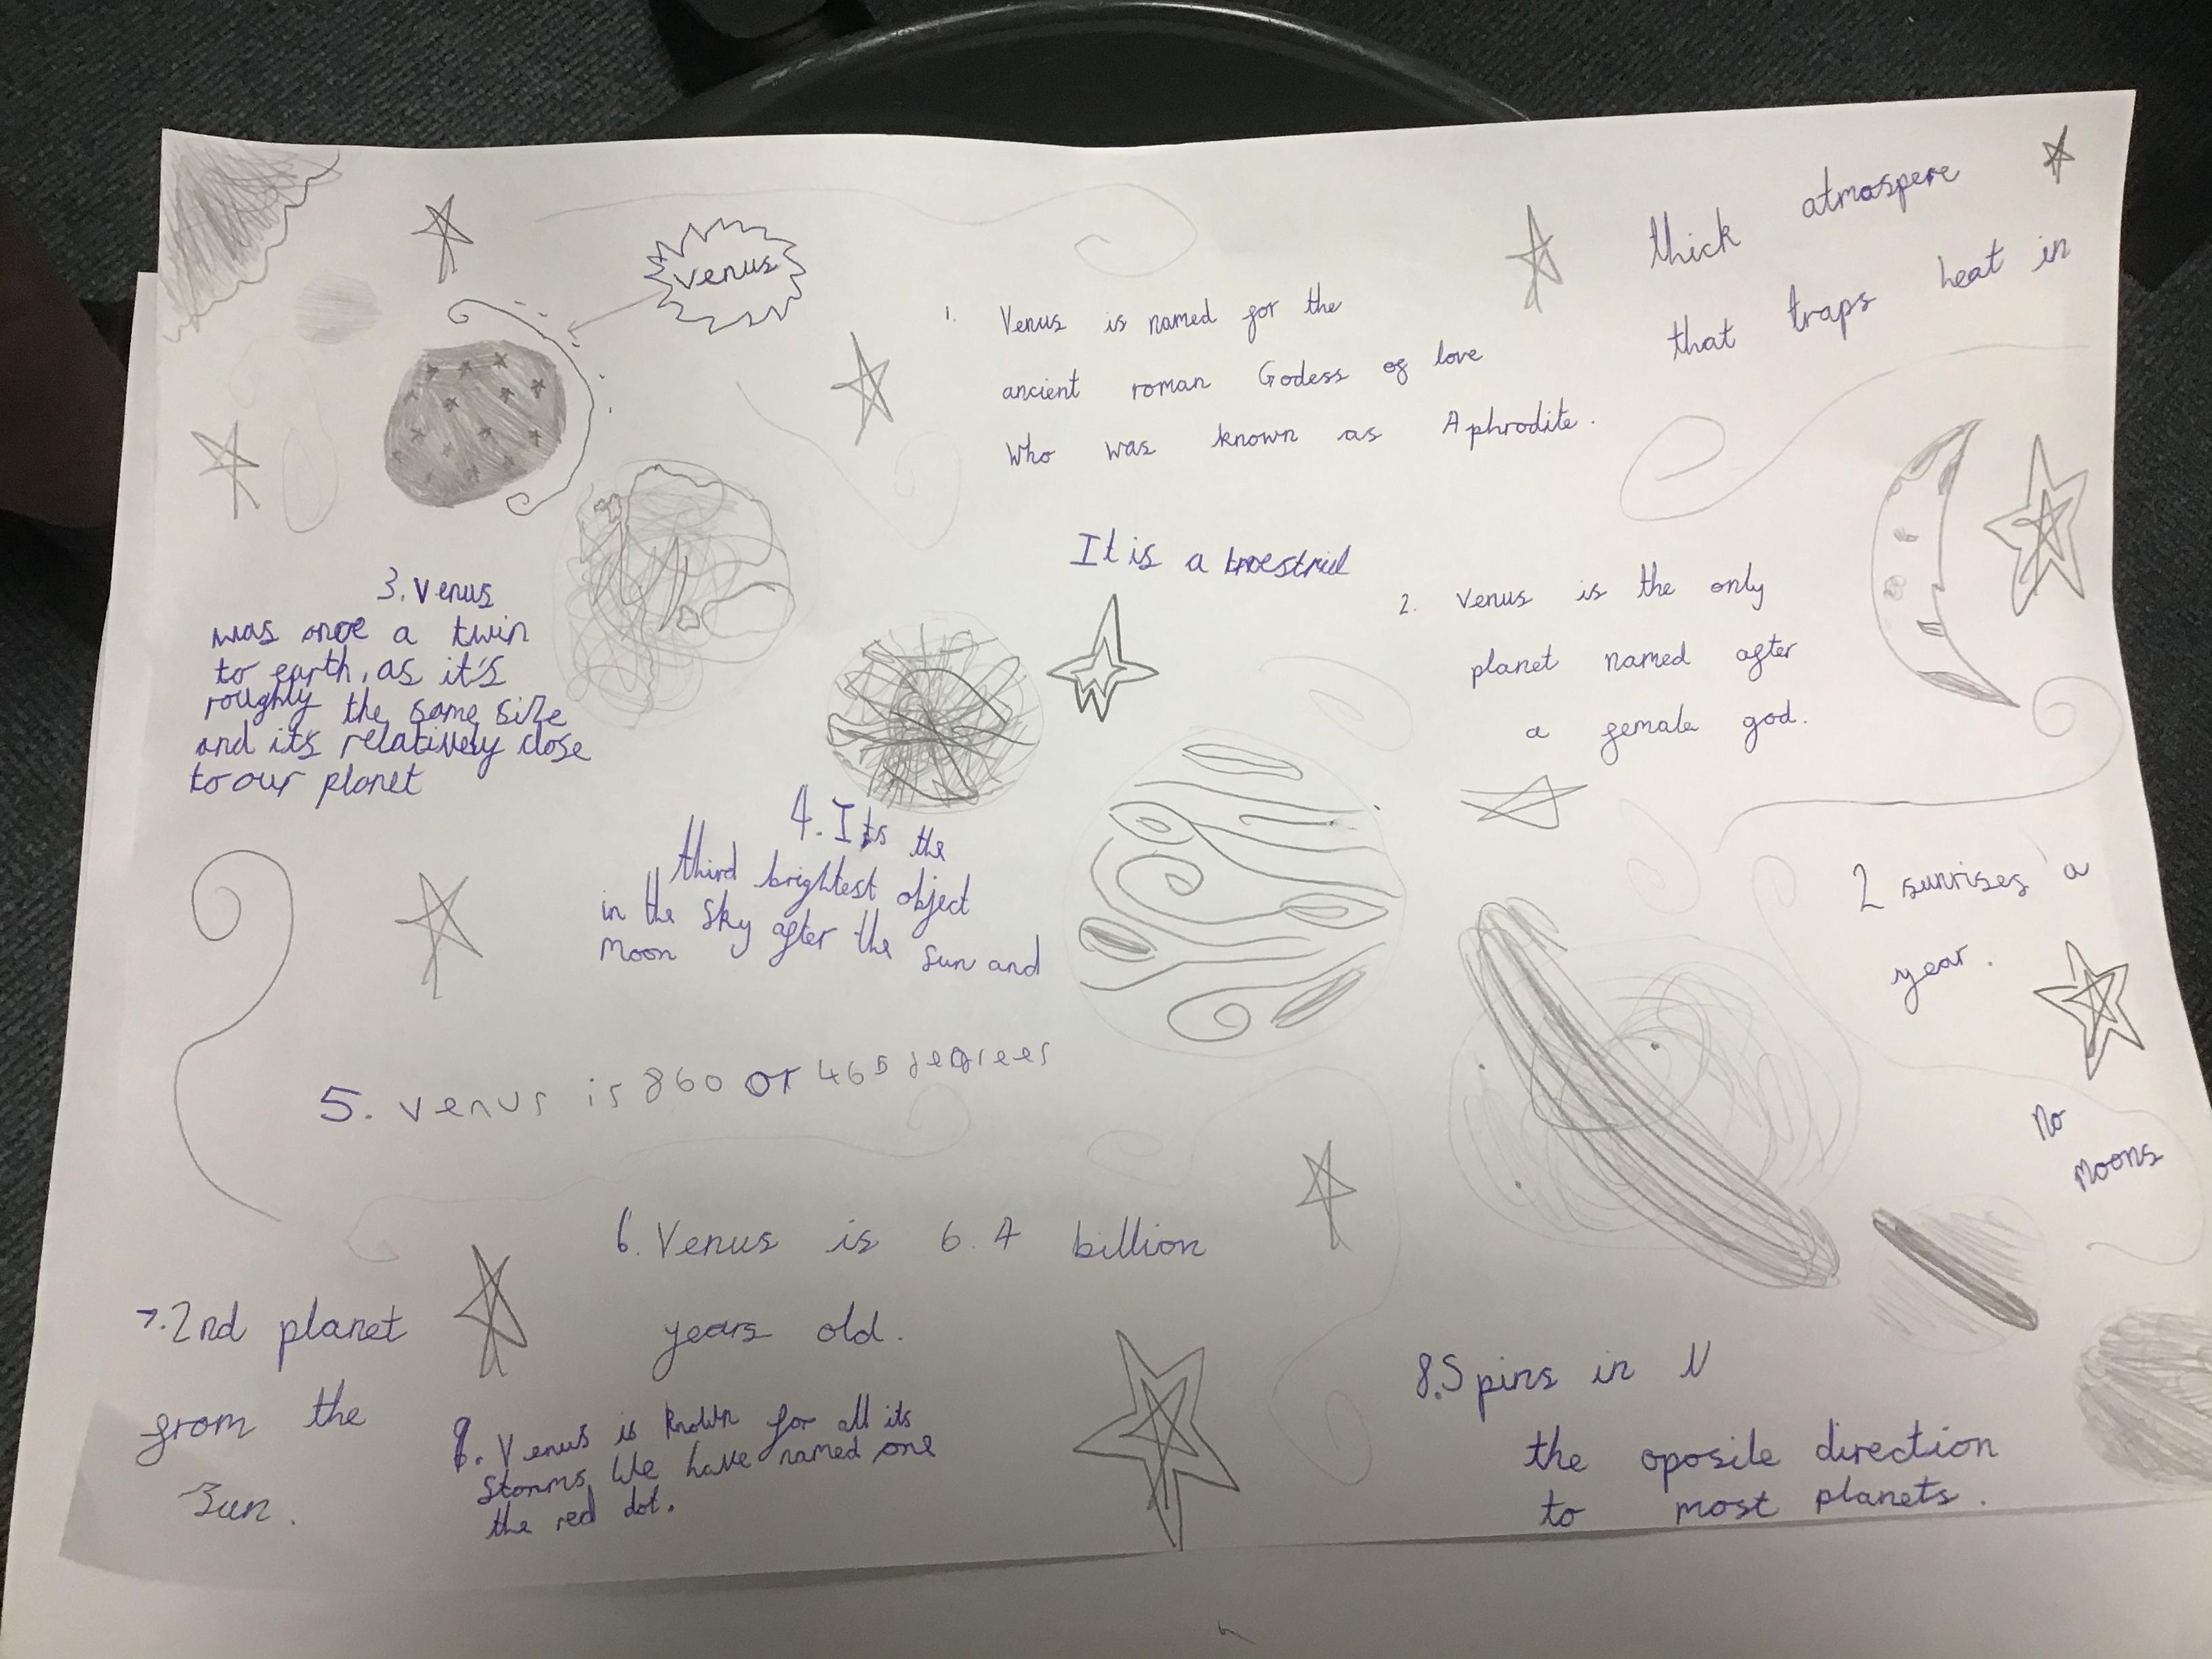 venus
thick atmospere
that traps heat in
1. Venus is named for the
ancient roman Godess of love
Who was known as Aphrodite.
It is a
2. Venus is the only
planet named after
a female god.
3. Venus
was once a twin
to earth, as it's
roughly the same size
and it's relatively close
to our planet
4. Its the
third brightest object
in the sky after the sun and
Moon
2 sunrises a
year.
5. venus is 860 or 465 degrees
No
Moons
6. Venus is 6.4 billion
years old.
7. 2nd planet
from the
Sun.
8. Spins in
the oposile direction
to most planets.
9. Venus is known for all its
storms. We have named one
the red dot.